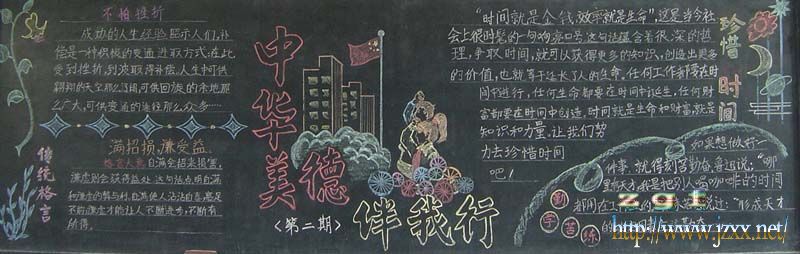 不怕挫折
成功的人生经验启示人们,补
偿是一种积极的变通进取方式.在此
受到挫折,到彼取得补偿.人生中可供
翱翔的天空那么辽阔,可供回旋的余地那
么广大,可供变通的途径那么众多……
传统格言
满招损,谦受益.
格言大意 自满会招来损害,
谦虚则会获得益处.这句话点明自满
不断
所得.
中华美德
〈第二期〉
伴我行
"时间就是金钱,效率就是生命",这是当今社
会上很时髦的一句响亮口号.这句话蕴含着很深的哲
理,争取时间,就可以获得更多的知识,创造出更多
的价值,也就等于延长了人的生命.任何工作都要在时
间中进行,任何生命都要在时间中诞生,任何财
富都要在时间中创造,时间就是生命和财富,就是
知识和力量.让我们努
力去珍惜时间
吧!
珍惜时间
如果想做好一
件事,就得刻苦勤奋.鲁迅说:"哪
里有天才,我是把别人喝咖啡的时间
都用在工作
"形成天才
勤学苦练
zgt
http://www.jzxx.net/